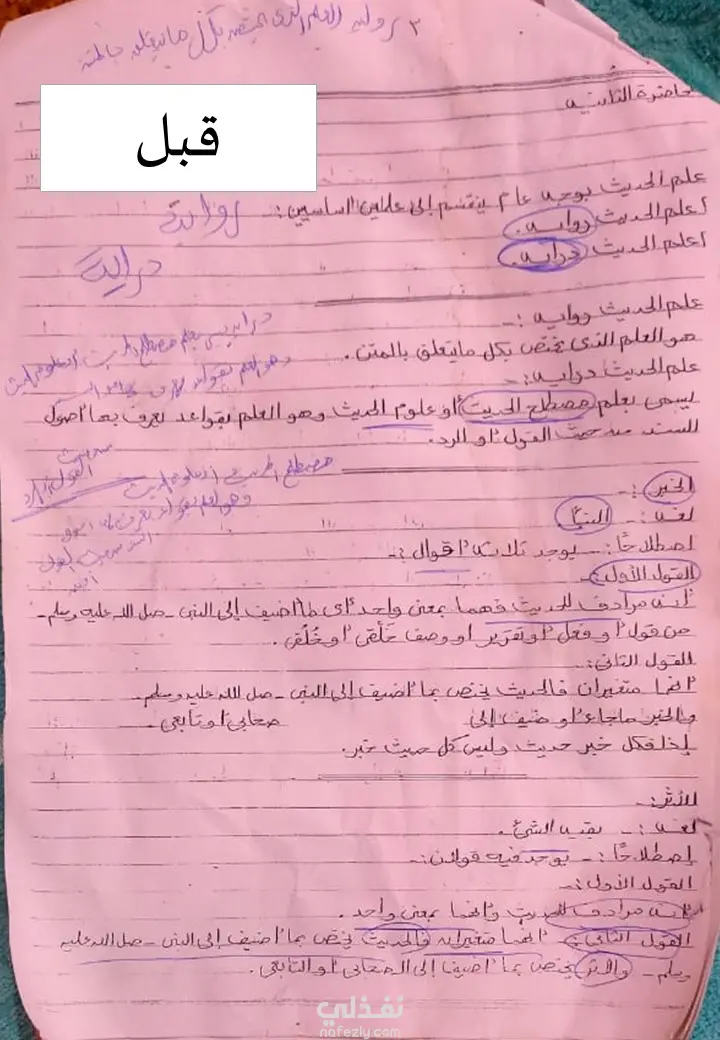 ٣ رواية العلم الذي يختص بكل ما يتعلق بالمتن
قبل
المحاضرة الثانية
علم الحديث بوجه عام ينقسم إلى علمين اساسيين:
أعلم الحديث رواية.
أعلم الحديث دراية.
رواية
دراية
علم الحديث رواية :-
هو العلم الذي يختص بكل ما يتعلق بالمتن.
علم الحديث دراية :-
يسمى بعلم مصطلح الحديث أو علوم الحديث وهو العلم بقواعد يعرف بها أصول
السند من حيث القول أو الرد.
مصطلح الحديث
الخبر :-
لغة :- النبأ.
اصطلاحًا :- يوجد ثلاثة أقوال :-
القول الأول :-
أنه مرادف للحديث فهما بمعنى واحد أي ما أضيف إلى النبي - صل الله عليه وسلم -
من قول أو فعل أو تقرير أو وصف خَلقي أو خُلُقي.
القول الثاني :-
انهما متغيران فالحديث يختص بما أضيف إلى النبي - صل الله عليه وسلم -
والخبر ماجاء أو ضيف إلى صحابي أو تابعي -
فكل خبر حديث وليس كل حديث خبر.
الأثر :-
لغة :- بقية الشئ.
إصطلاحًا :- يوجد فيه قولان :-
القول الأول :-
انه مرادف للحديث وانهما بمعنى واحد.
القول الثاني :- انهما متغيران فالحديث يختص بما أضيف إلى النبي - صل الله عليه
وسلم - والأثر يختص بما أضيف إلى الصحابي أو التابعي.
نفذلي
nafezly.com